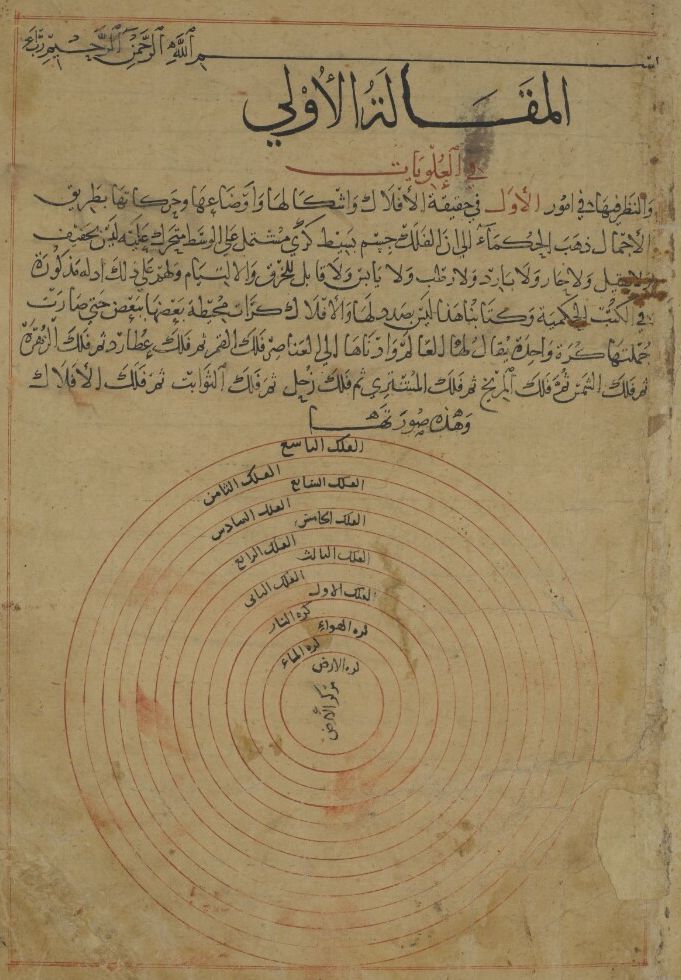 بسم الله الرحمن الرحيم
المقالة الأولي
في العلويات
والنظر فيها في امور الأول في حقيقة الأفلاك واشكالها واوضاعها وحركاتها بطريق
الاجمال ذهب الحكماء الى ان الفلك جسم بسيط كري مشتمل على الوسط متحرك عليه ليس بخفيف
ولا ثقيل ولا حار ولا بارد ولا رطب ولا يابس ولا قابل للخرق والالتيام ولهم على ذلك ادلة مذكورة
في الكتب الحكمية وكتابنا هذا ليس بصدد لها والافلاك كرات محيطة بعضها ببعض حتى صارت
جملتها كرة واحدة يقال لها العالم وادناها الى العناصر فلك القمر ثم فلك عطارد ثم فلك الزهرة
ثم فلك الشمس ثم فلك المريخ ثم فلك المشتري ثم فلك زحل ثم فلك الثوابت ثم فلك الأفلاك
وهذه صورتها
الفلك التاسع
الفلك الثامن
الفلك السابع
الفلك السادس
الفلك الخامس
الفلك الرابع
الفلك الثالث
الفلك الثاني
الفلك الاول
كره النار
كره الهواء
كره الماء
كره الارض
مركز الأرض